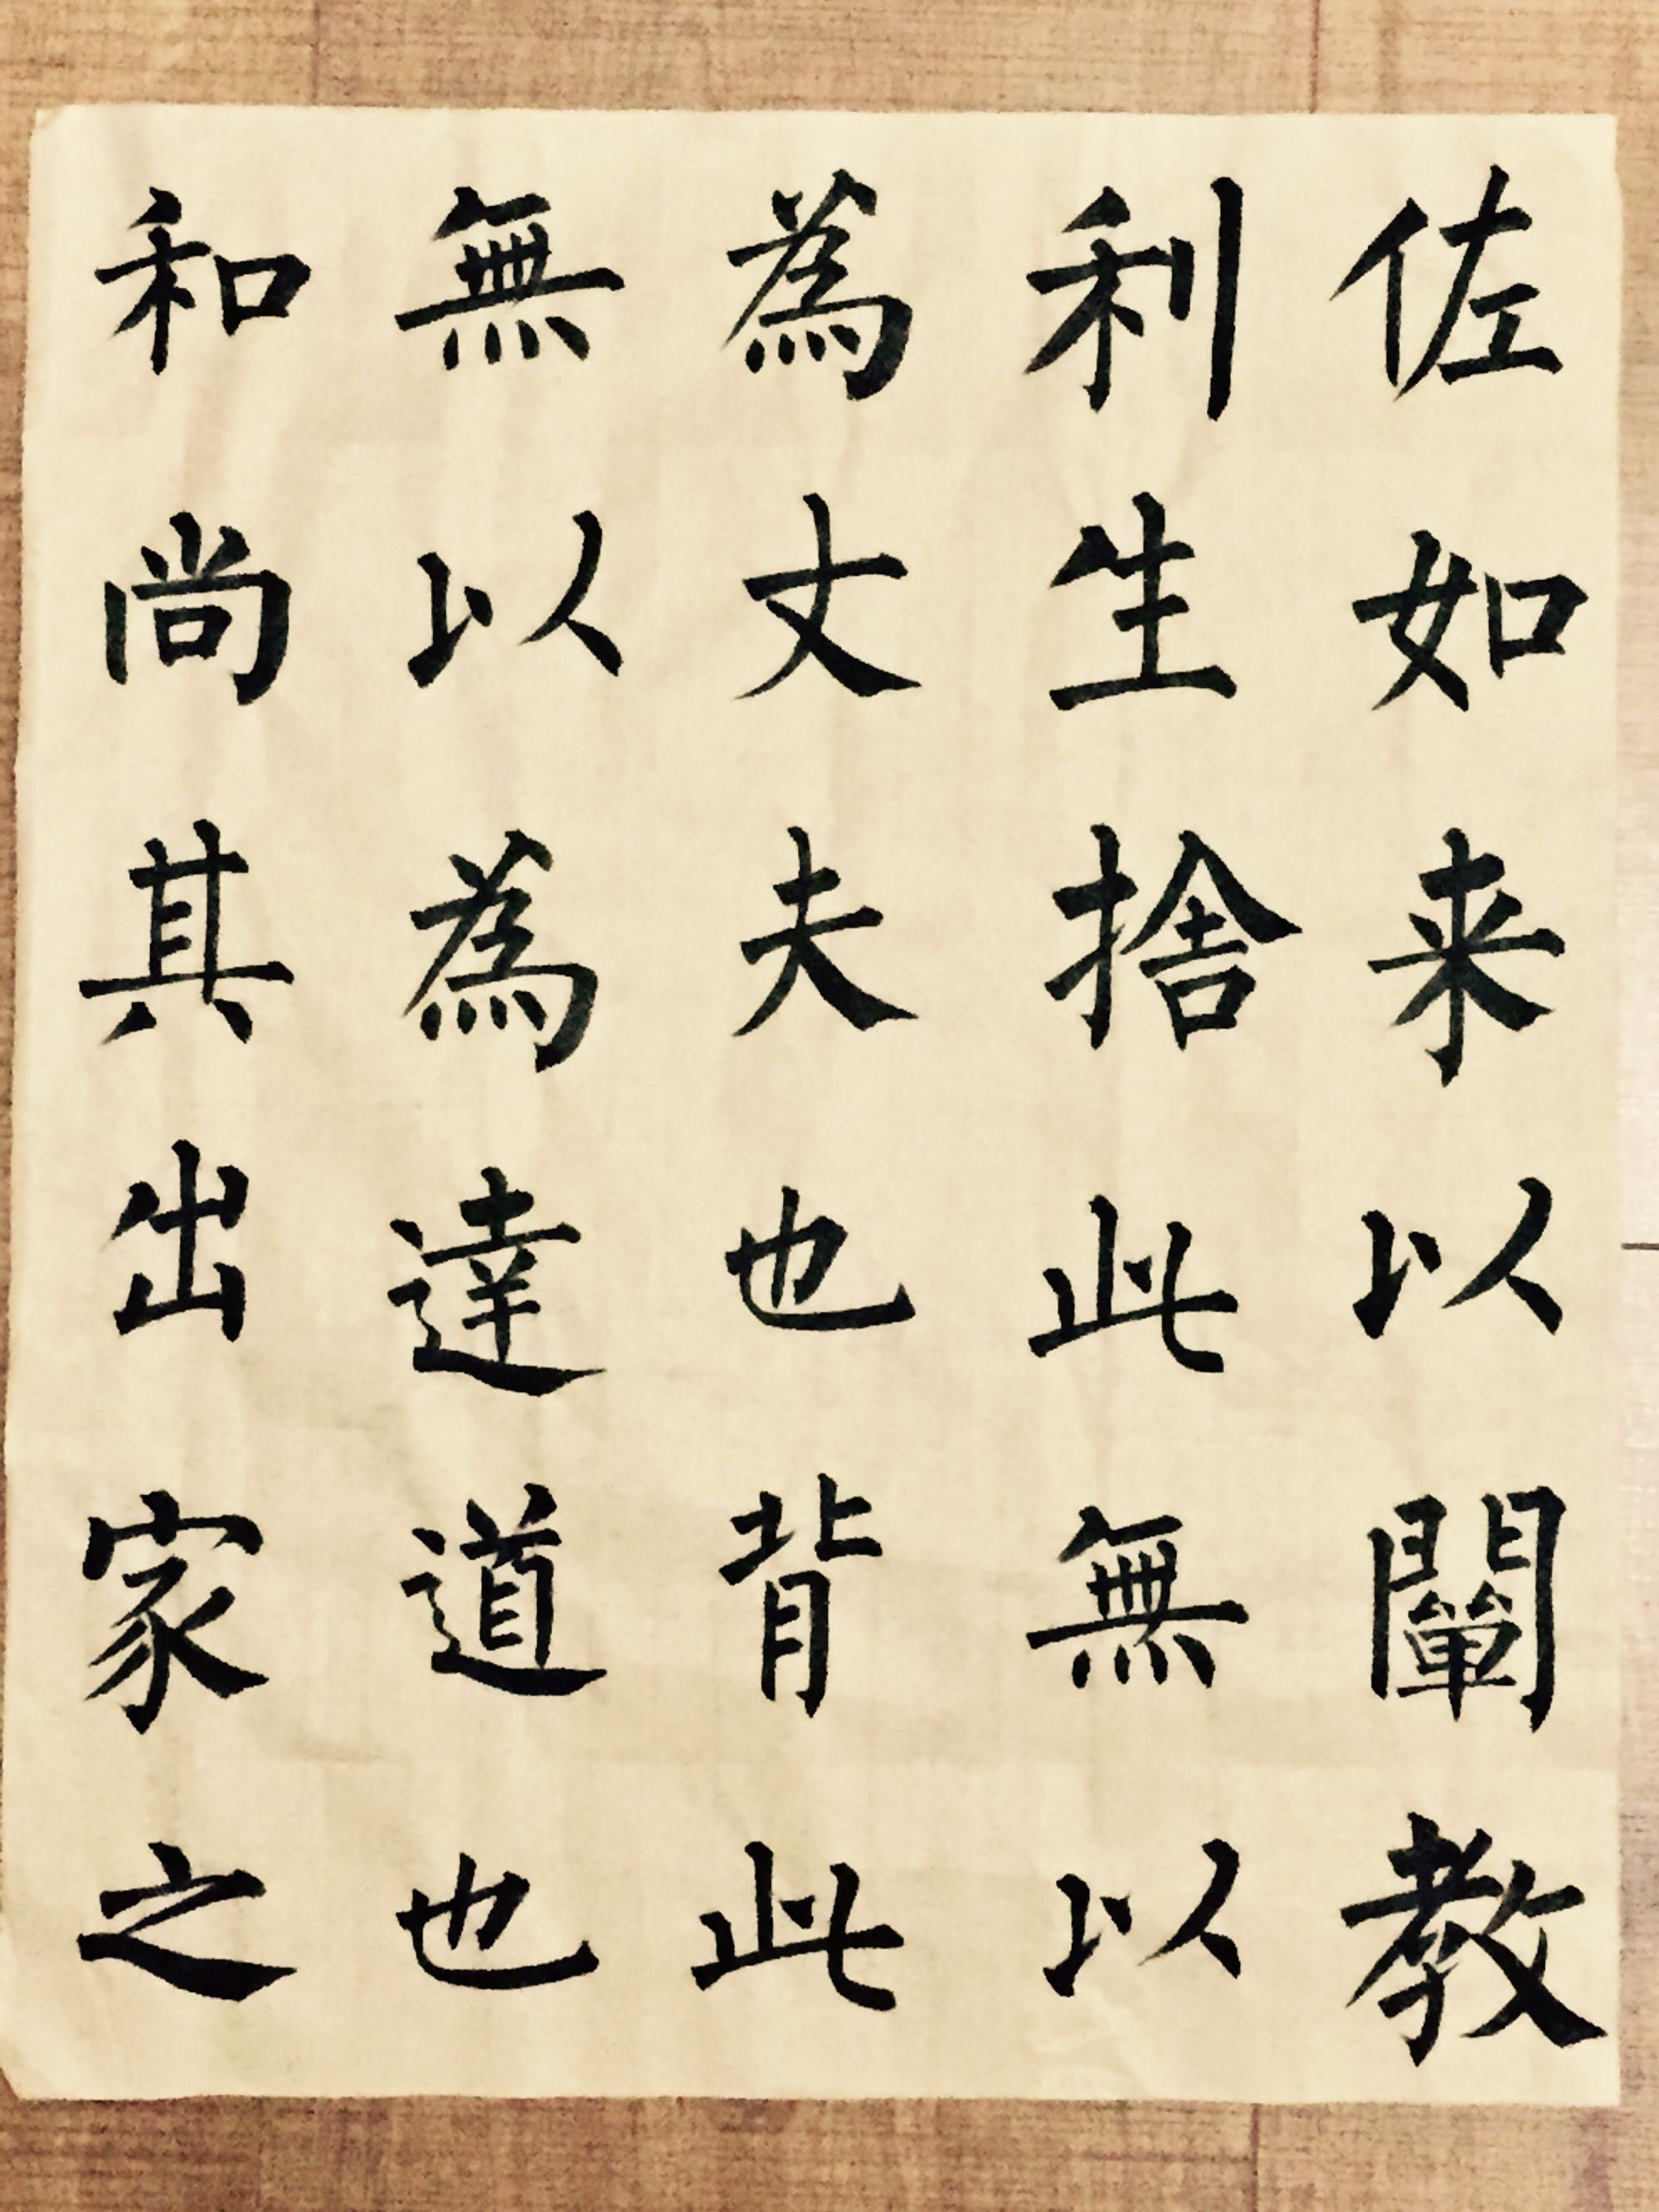 佐如来以闡教
利生捨此無以
為丈夫也背此
無以為達道也
和尚其出家之